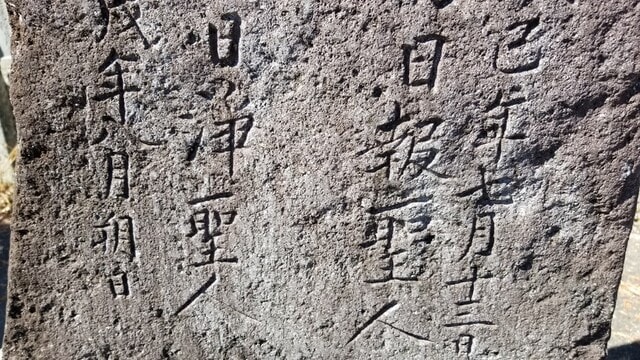 巳年七月十三日
日報聖人
日浄聖人
年八月朔日